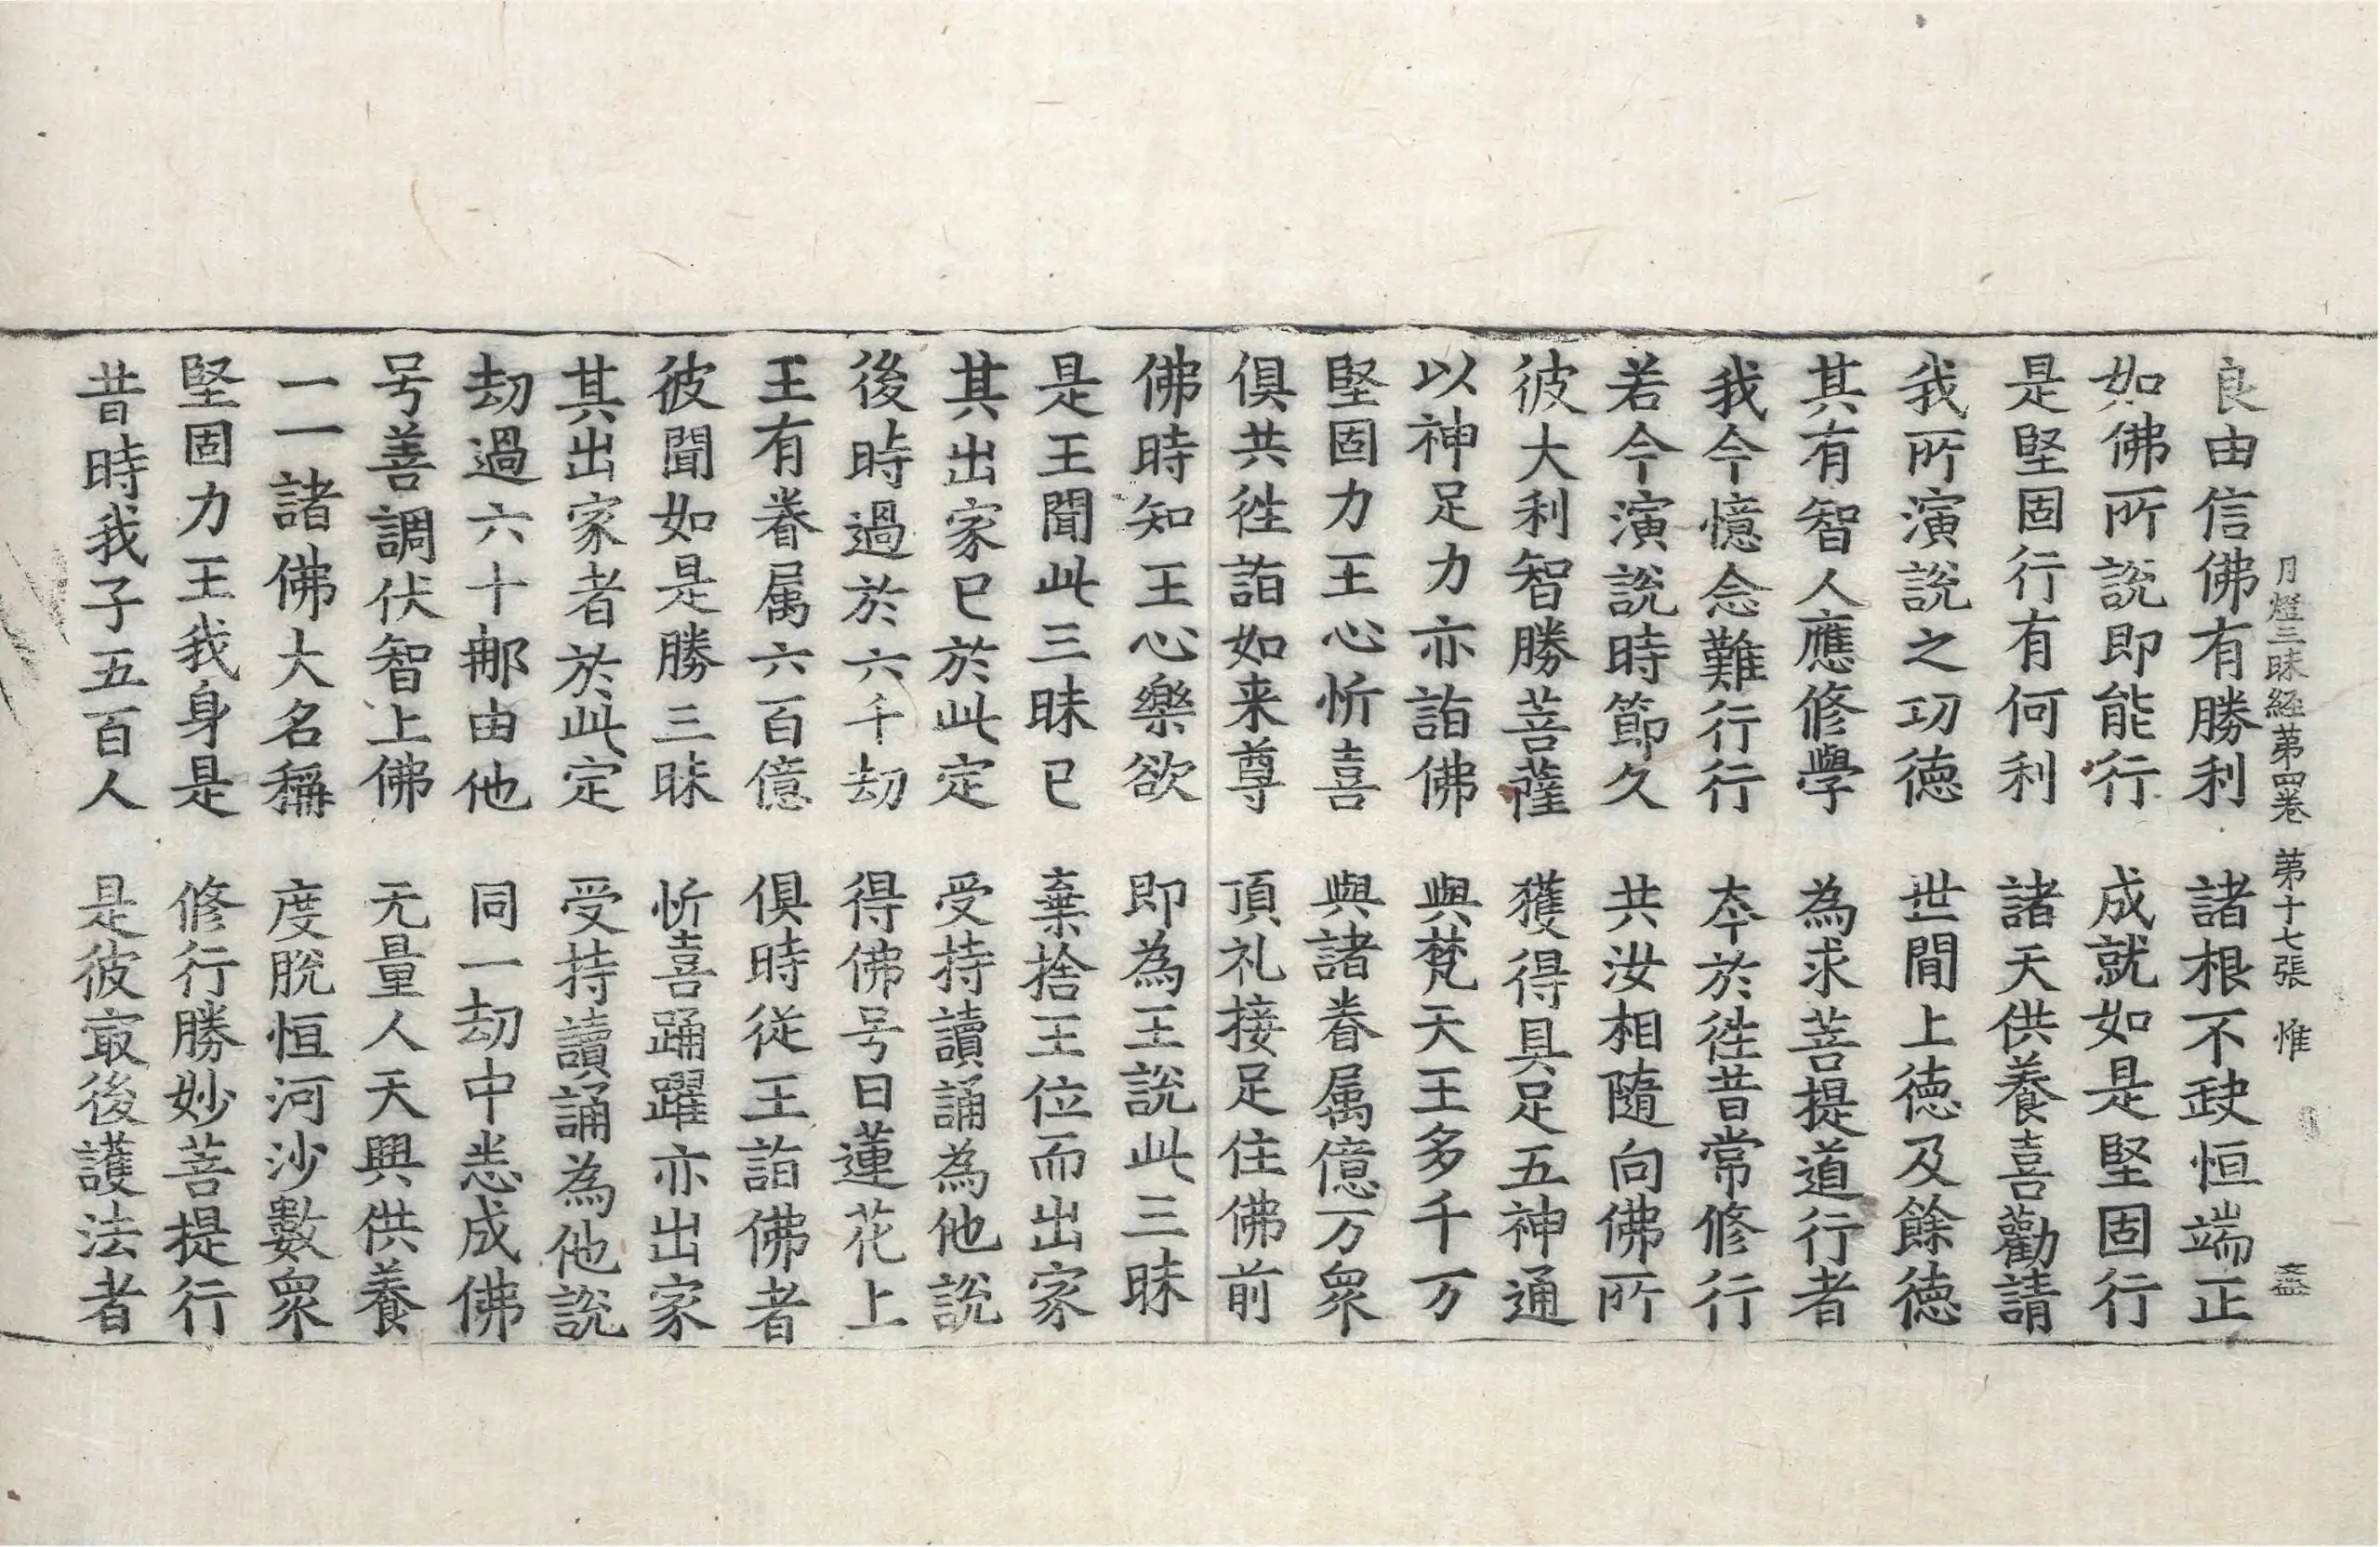 月燈三昧経苐四卷 苐十七張 惟 文益
良由信佛有勝利 諸根不𡙇恒端正
如佛所說即能行 成就如是堅固行
是堅固行有何利 諸天供養喜勸請
我所演說之功徳 世間上徳及餘徳
其有智人應修學 為求菩提道行者
我今憶念難行行 夲於徃昔常修行
若今演說時節久 共汝相隨向佛所
彼大利智勝菩薩 獲得具足五神通
以神足力亦詣佛 與梵天王多千万
堅固力王心忻喜 與諸眷属億万衆
俱共徃詣如来尊 頂礼接足住佛前
佛時知王心樂欲 即為王說此三昧
是王聞此三昧已 棄捨王位而出家
其出家已於此定 受持讀誦為他說
後時過於六千劫 得佛号曰蓮花上
王有眷属六百億 俱時従王詣佛者
彼聞如是勝三昧 忻喜踊躍亦出家
其出家者於此定 受持讀誦為他說
劫過六十那由他 同一劫中悉成佛
号善調伏智上佛 无量人天興供養
一一諸佛大名稱 度脫恒河沙數衆
堅固力王我身是 修行勝妙菩提行
昔時我子五百人 是彼㝡後護法者